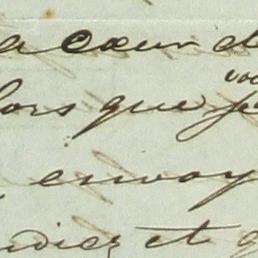 a cœur d
lors que
envoy
ndiez et q